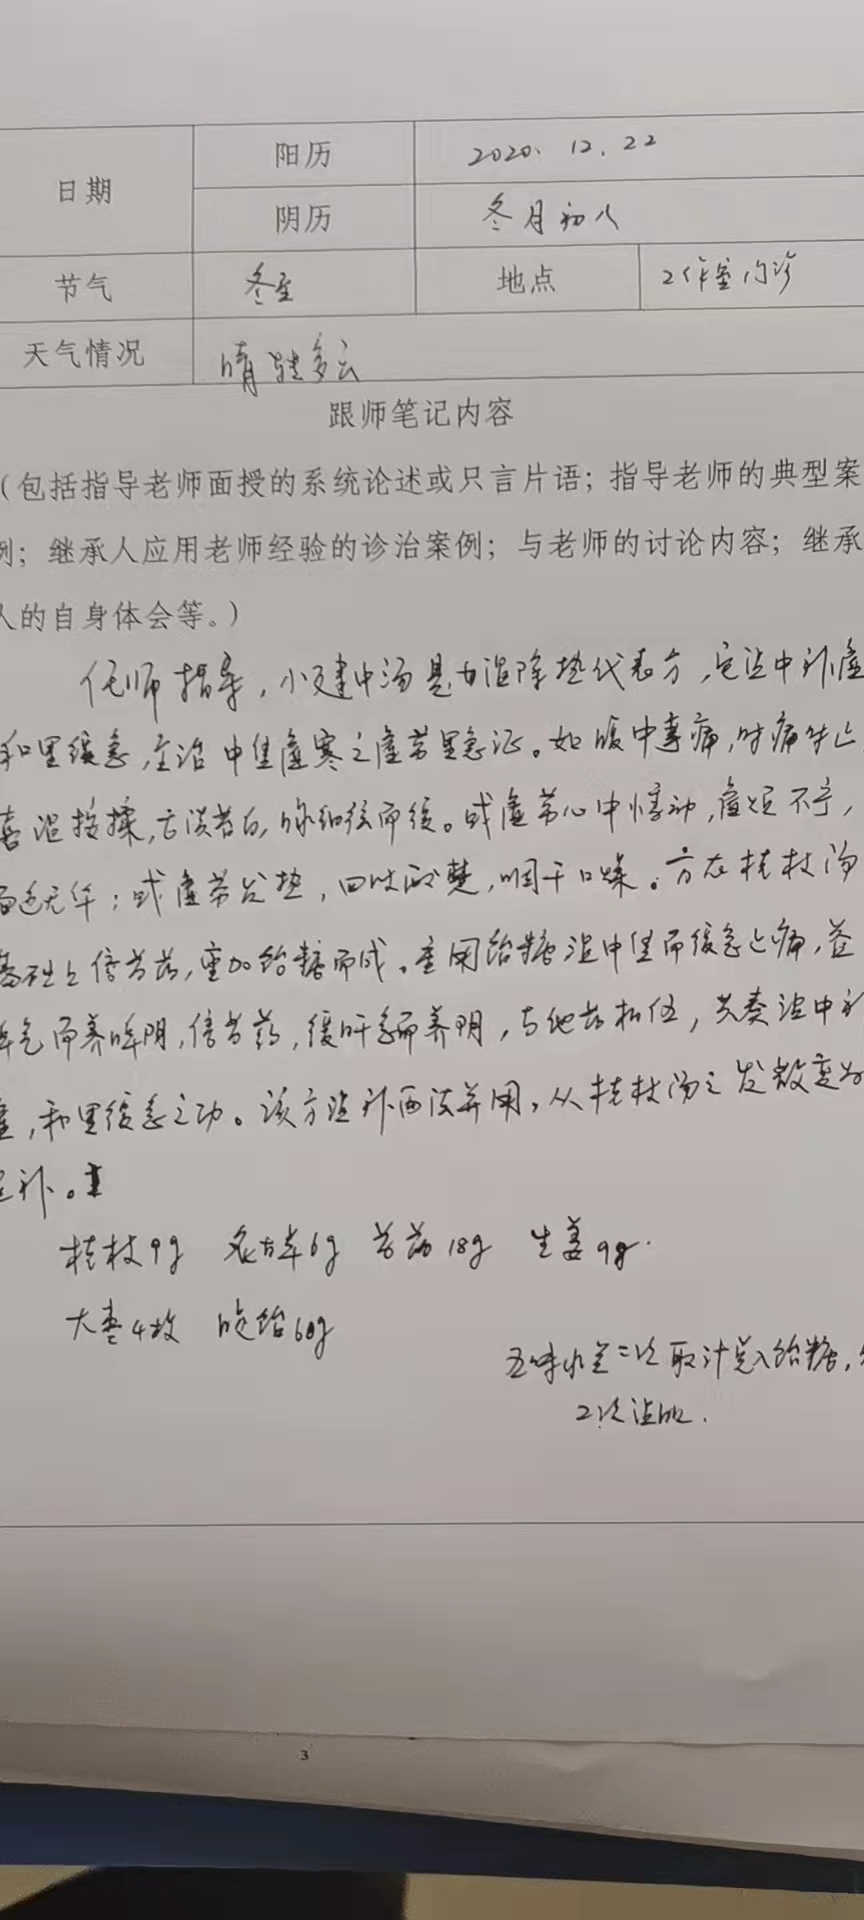 日期 阳历 2020. 12. 22
阴历 冬月初八
节气 冬至 地点 工作室门诊
天气情况 晴转多云
跟师笔记内容
（包括指导老师面授的系统论述或只言片语；指导老师的典型案
例；继承人应用老师经验的诊治案例；与老师的讨论内容；继承
人的自身体会等。）
任师指导，小建中汤是甘温除热代表方，它温中补虚
和里缓急，主治中焦虚寒之虚劳里急证。如腹中事痛，时痛时止，
喜温按揉，舌淡苔白，脉细弦而缓。或虚劳心中悸动，虚烦不宁，
面色无华；或虚劳发热，四肢酸楚，咽干口燥。方在桂枝汤
基础上倍芍药，重加饴糖而成。重用饴糖温中焦而缓急止痛，益
脾气而养脾阴，倍芍药，缓肝急而养阴，与他药相伍，共奏温中补
虚，和里缓急之功。该方温补两法并用，从桂枝汤之发散变为
温补。
桂枝9g 炙甘草6g 芍药18g 生姜9g.
大枣4枚 饴60g
五味水煎二次取汁兑入饴糖，分
2次温服.
3